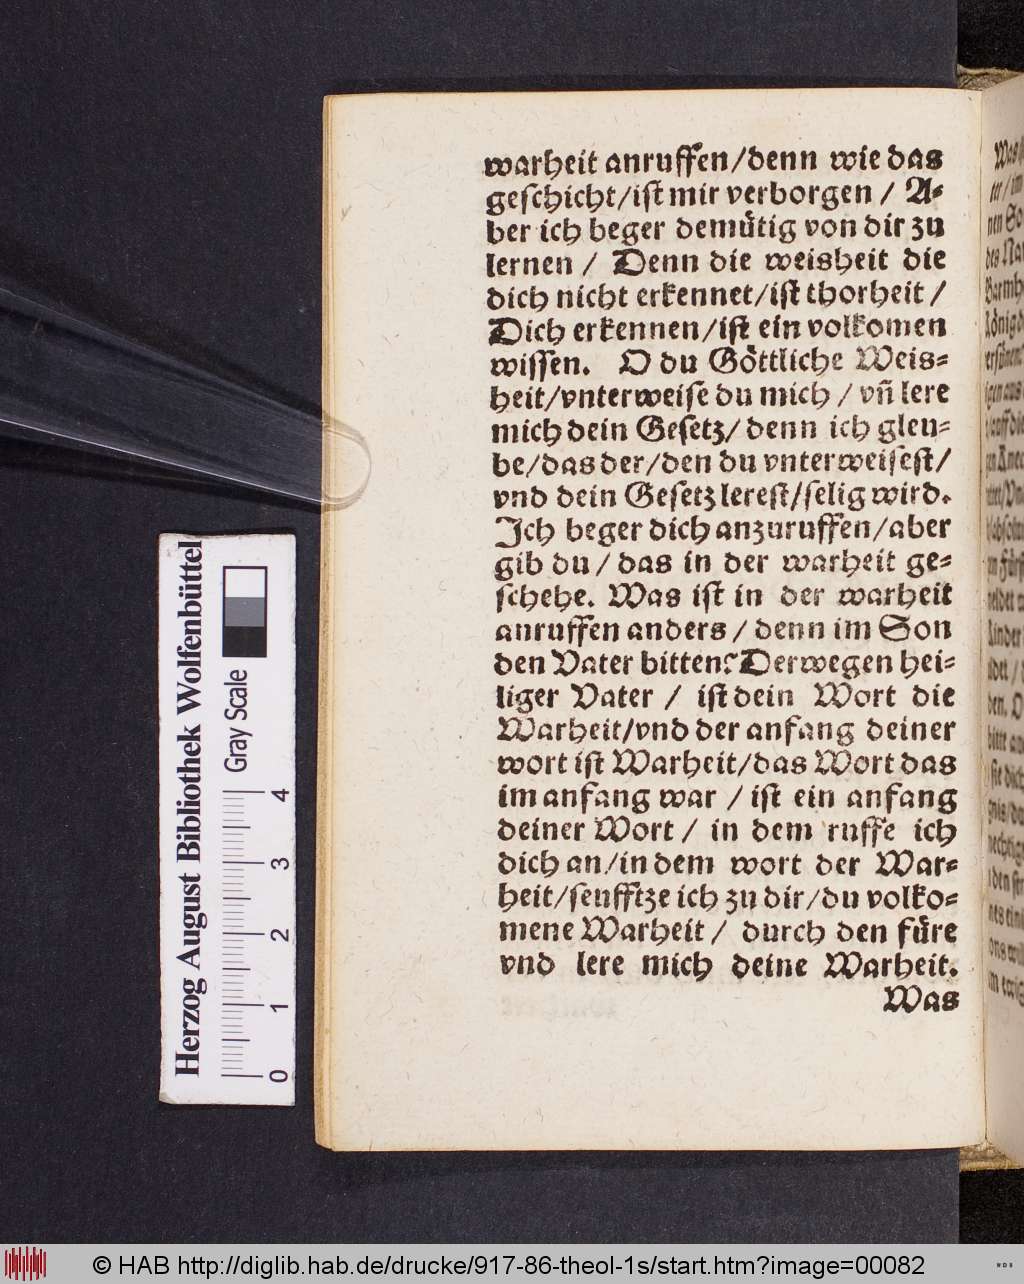 warheit anruffen/denn wie das
geschicht/ist mir verborgen / A-
ber ich beger demütig von dir zu
lernen / Denn die weisheit die
dich nicht erkennet/ist thorheit /
Dich erkennen/ist ein volkomen
wissen. O du Göttliche Weis-
heit/vnterweise du mich / vñ lere
mich dein Gesetz/ denn ich gleu-
be/das der/den du vnterweisest/
vnd dein Gesetz lerest/selig wird.
Ich beger dich anzuruffen/aber
gib du / das in der warheit ge-
schehe. Was ist in der warheit
anruffen anders / denn im Son
den Vater bitten? Derwegen hei-
liger Vater / ist dein Wort die
Warheit/vnd der anfang deiner
wort ist Warheit/das Wort das
im anfang war / ist ein anfang
deiner Wort / in dem ruffe ich
dich an/in dem wort der War-
heit/seufftze ich zu dir/du volko-
mene Warheit / durch den füre
vnd lere mich deine Warheit.
Was
Herzog August Bibliothek Wolfenbüttel
Gray Scale
0 1 2 3 4
© HAB http://diglib.hab.de/drucke/917-86-theol-1s/start.htm?image=00082